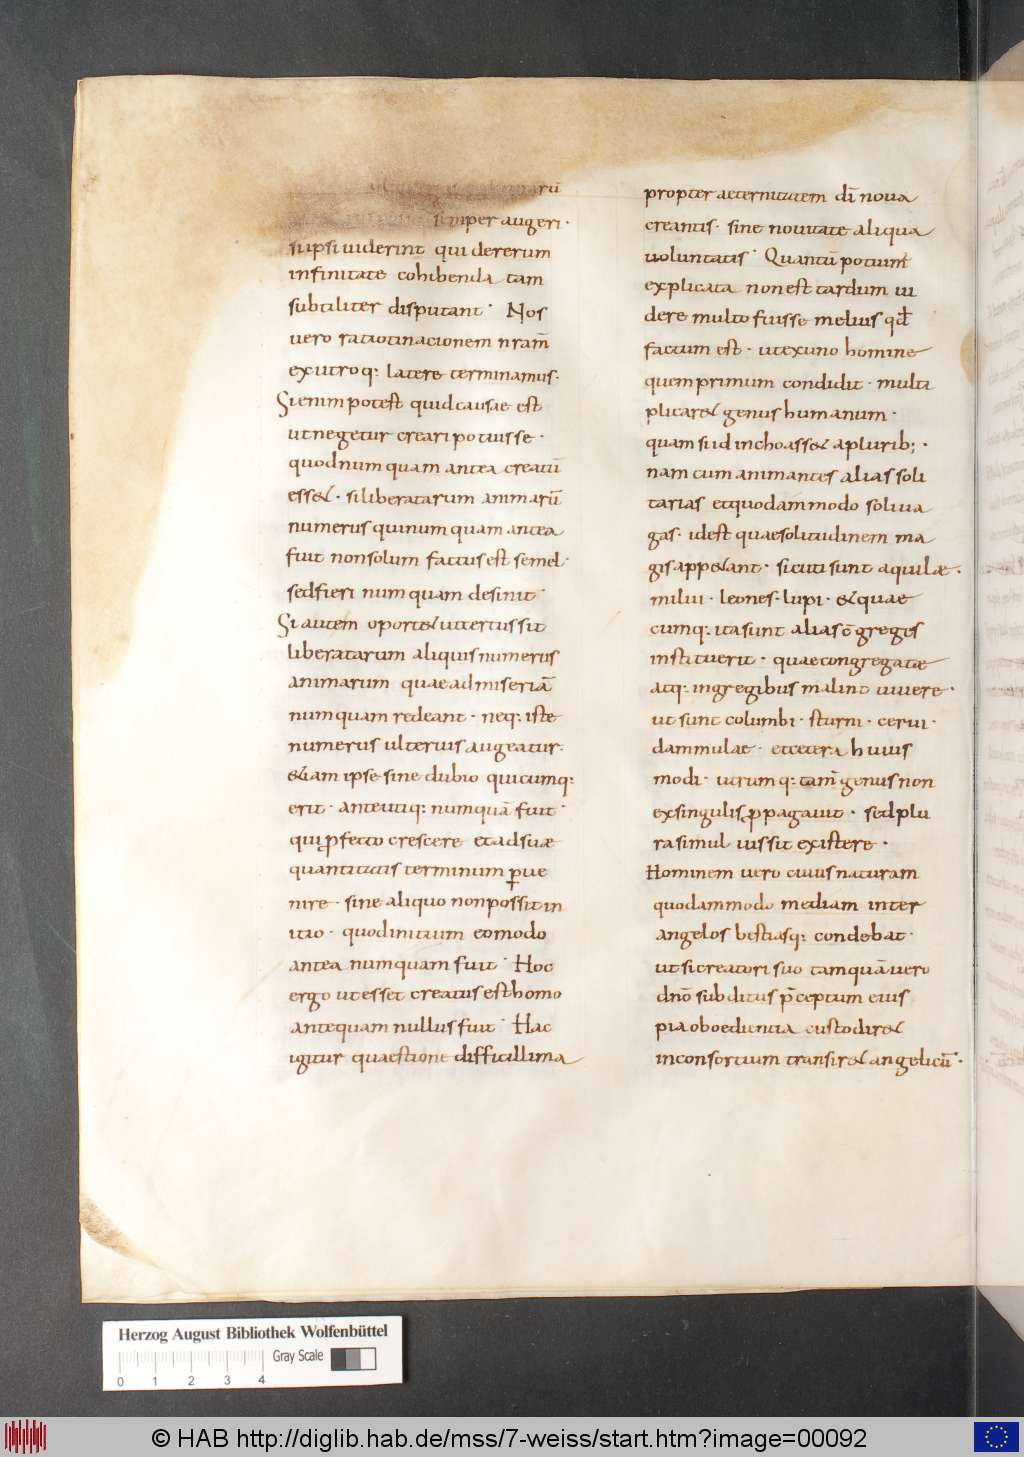 rarū
semper augeri·
siipsi uiderint qui dererum
infinitate cohibenda tam
subtiliter disputant· Nos
uero ratiotinacionem nram̄
exutroq: latere terminamus·
Si enim potest quid causae est
utnegetur creari potuisse·
quod numquam antea creatū
esset· si liberatarum animarū
numerus quinumquam antea
fuit nonsolum factus est semel·
sedfieri numquam desinit·
Si autem oportet uttertussit
liberatarum aliquis numerus
animarum quae admiseriā
numquam redeant· neq: iste
numerus ulterius augeatur·
etiam ipse sine dubio quicumq:
erit· anteutiq: numquā fuit·
qui ꝓfecto crescere et adsuæ
quantitatis terminum ꝑue
nire· sine aliquo nonpossit in
itio· quod initium eomodo
antea numquam fuit· Hoc
ergo ut esset creatus est homo
antequam nullus fuit· Hac
igitur quaestione difficillima
propter aeternitatem dī noua
creantis· sine nouitate aliqua
uoluntatis· Quantū potuim
explicata non est tardum ui
dere multo fuisse melius qđ
factum est· ut exuno homine
quem primum condidit· multi
plicaret genus humanum·
quam si id inchoasset aplurib;·
nam cum animantes alias soli
tarias et quodammodo soliua
gas· id est quae solitudinem ma
gis appetant· sicuti sunt aquilæ·
milui· leones· lupi· et quae
cumq: ita sunt alias c̄greges
instituerit· quae congregatæ
atq: ingregibus malint uiuere·
ut sunt columbi· sturni· cerui·
dammulae· et cetera huius
modi· utrumq: tam̄ genus non
exsingulis ꝓpagauit· sed plu
ra simul iussit existere·
Hominem uero cuius naturam
quodammodo mediam inter
angelos bestiasq: condebat·
ut si creatori suo tamquā uero
dnō subditus p̄ceptum eius
pia oboedientia custodiret
in consortium transiret angelicū·
Herzog August Bibliothek Wolfenbüttel
Gray Scale
0 1 2 3 4
© HAB http://diglib.hab.de/mss/7-weiss/start.htm?image=00092